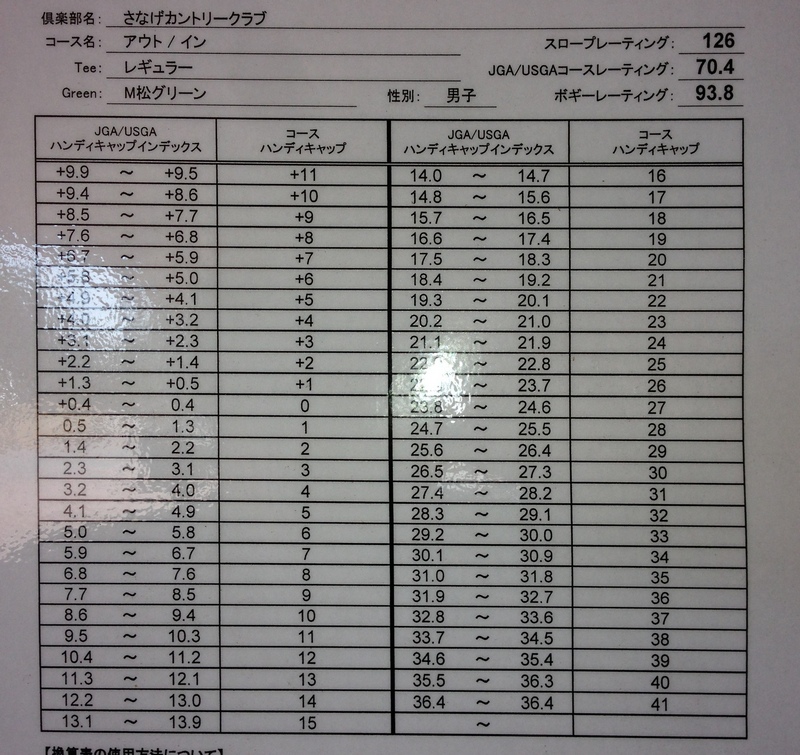 倶楽部名: さなげカントリークラブ
コース名: アウト / イン スロープレーティング: 126
Tee: レギュラー JGA/USGAコースレーティング: 70.4
Green: M松グリーン 性別: 男子 ボギーレーティング: 93.8
JGA/USGA コース JGA/USGA コース
ハンディキャップインデックス ハンディキャップ ハンディキャップインデックス ハンディキャップ
+9.9 ～ +9.5 +11 14.0 ～ 14.7 16
+9.4 ～ +8.6 +10 14.8 ～ 15.6 17
+8.5 ～ +7.7 +9 15.7 ～ 16.5 18
+7.6 ～ +6.8 +8 16.6 ～ 17.4 19
+6.7 ～ +5.9 +7 17.5 ～ 18.3 20
+5.8 ～ +5.0 +6 18.4 ～ 19.2 21
+4.9 ～ +4.1 +5 19.3 ～ 20.1 22
+4.0 ～ +3.2 +4 20.2 ～ 21.0 23
+3.1 ～ +2.3 +3 21.1 ～ 21.9 24
+2.2 ～ +1.4 +2 ～ 22.8 25
+1.3 ～ +0.5 +1 ～ 23.7 26
+0.4 ～ 0.4 0 23.8 ～ 24.6 27
0.5 ～ 1.3 1 24.7 ～ 25.5 28
1.4 ～ 2.2 2 25.6 ～ 26.4 29
2.3 ～ 3.1 3 26.5 ～ 27.3 30
3.2 ～ 4.0 4 27.4 ～ 28.2 31
4.1 ～ 4.9 5 28.3 ～ 29.1 32
5.0 ～ 5.8 6 29.2 ～ 30.0 33
5.9 ～ 6.7 7 30.1 ～ 30.9 34
6.8 ～ 7.6 8 31.0 ～ 31.8 35
7.7 ～ 8.5 9 31.9 ～ 32.7 36
8.6 ～ 9.4 10 32.8 ～ 33.6 37
9.5 ～ 10.3 11 33.7 ～ 34.5 38
10.4 ～ 11.2 12 34.6 ～ 35.4 39
11.3 ～ 12.1 13 35.5 ～ 36.3 40
12.2 ～ 13.0 14 36.4 ～ 36.4 41
13.1 ～ 13.9 15 ～
【換算表の使用方法について】